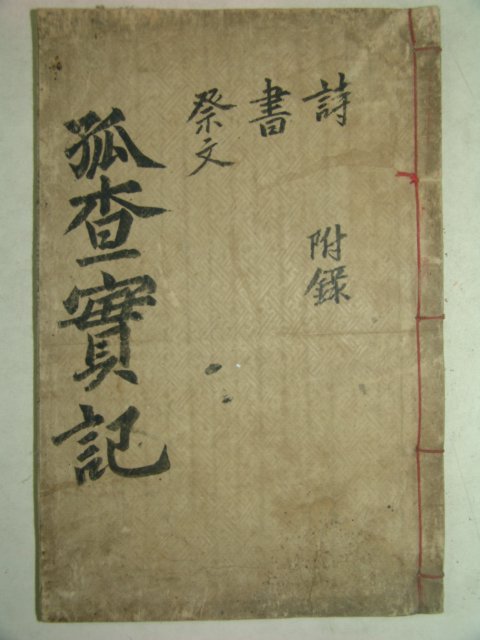 詩
附録
書
祭文
孤查實記